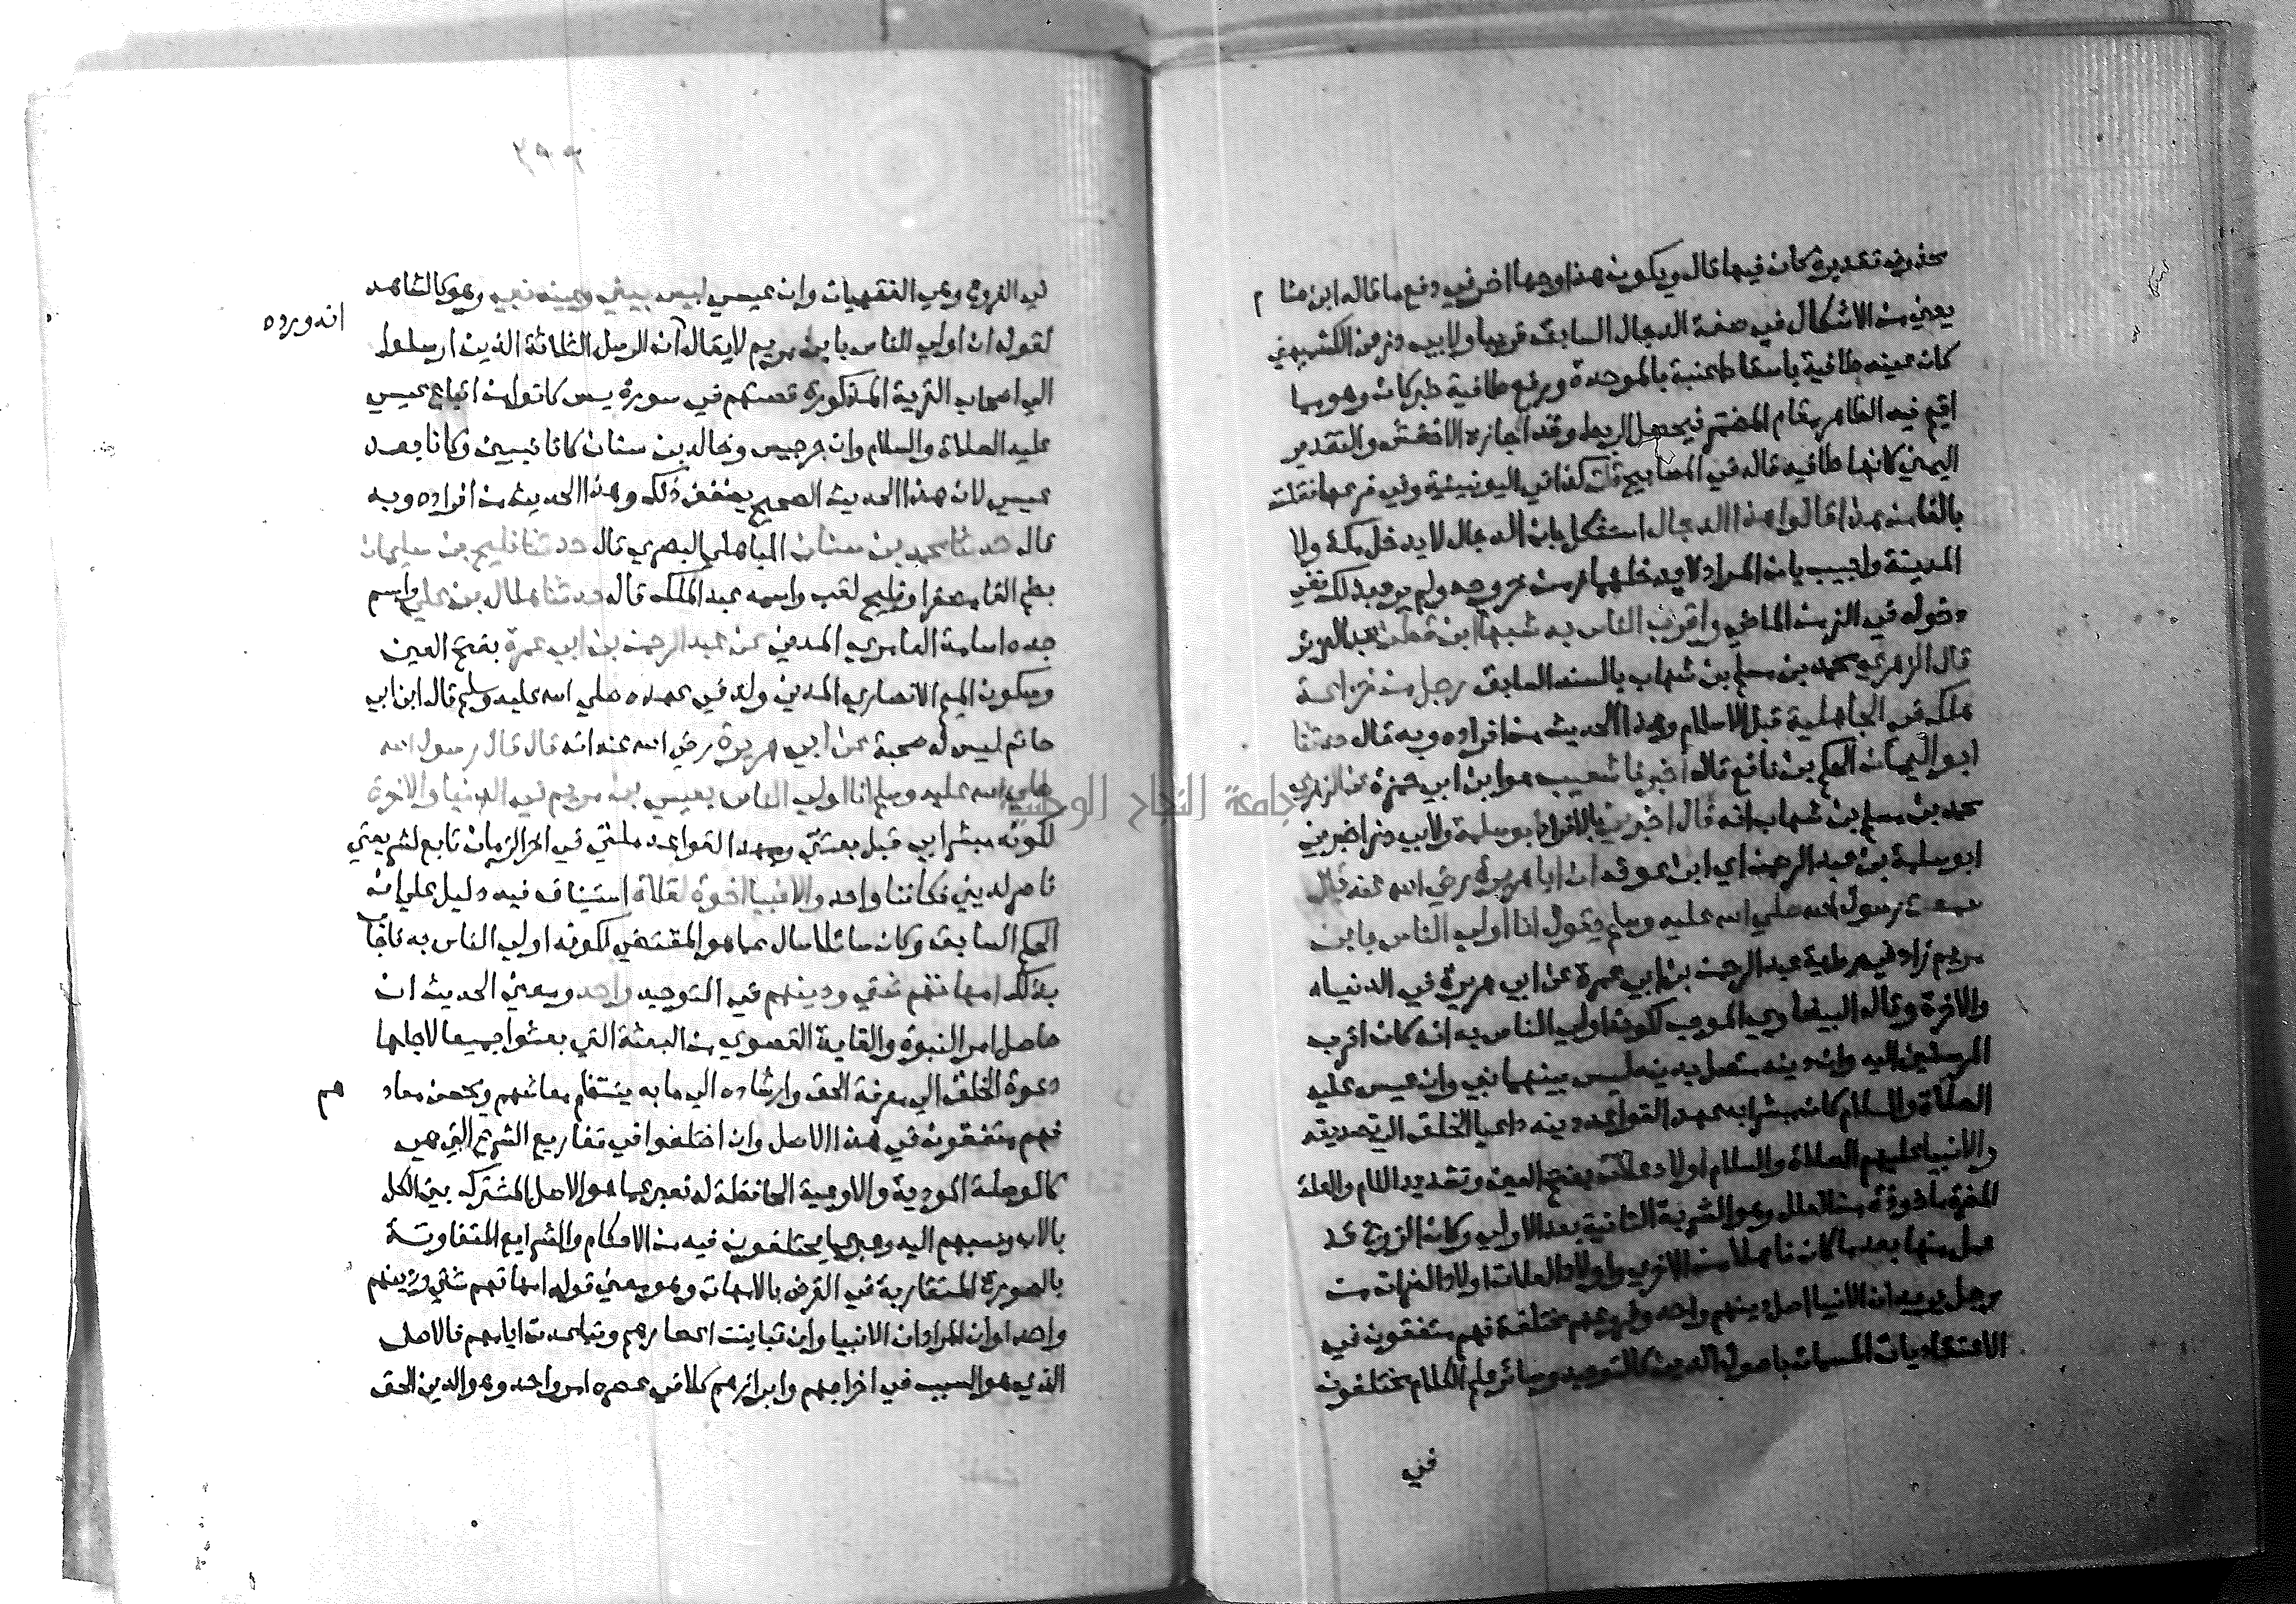 محذوف تقديره كان فيها قال ويكون هذا وجها اخر في دفع ما قاله ابن هشا م
يعني من الاشكال في صفة الدجال السابق قريبا ولابي ذر عن الكشميهني
كان عينه طافية باسقاط عنبة بالموحدة ورفع طافية خبر كان وهو مما
اقيم فيه الظاهر مقام المضمر فيحصل الربط وقد اجازه الاخفش والتقدير
اليمنى كانها طافيه قاله في المصابيح قلت كذا في اليونينية وفي فرعها فقلت
بالفا من هذا قالوا هذا الدجال استشكل بان الدجال لا يدخل مكة ولا
المدينة واجيب بان المراد لا يدخلهما زمن خروجه ولم يرد بذلك نفي
دخوله في الزمن الماضي واقرب الناس به شبها ابن قطن عبد العزيز
قال الزهري محمد بن مسلم بن شهاب بالسند السابق رجل من خزاعة
هلك في الجاهلية قبل الاسلام وهذا الحديث من افراده وبه قال حدثنا
ابو اليمان الحكم بن نافع قال اخبرنا شعيب هو ابن ابي حمزة عن الزهري
محمد بن مسلم بن شهاب انه قال اخبرني بالافراد ابو سلمة ولابي ذر اخبرني
ابو سلمة بن عبد الرحمن اي ابن عوف ان ابا هريرة رضي الله عنه قال
سمعت رسول الله صلي الله عليه وسلم يقول انا اولي الناس بابن
مريم زاد في رواية عبد الرحمن بن ابي عمرة عن ابي هريرة في الدنيا
والاخرة وقال البيضاوي الموجب لكونه اولي الناس به انه كان اقرب
المرسلين اليه وان دينه متصل بدينه ليس بينهما نبي وان عيسى عليه
الصلاة والسلام كان مبشرا به ممهدا لقواعد دينه داعيا الخلق الي تصديقه
والانبيا عليهم الصلاة والسلام اولاد علات بفتح العين وتشديد اللام والعلة
الضرة ماخوذة من العلل وهو الشربة الثانية بعد الاولي وكان الزوج قد
عل منها بعد ما كان ناهلا من الاخري واولاد العلات اولاد الضرات من
رجل يريد ان الانبيا اصل دينهم واحد وفروعهم مختلفة فهم متفقون في
الاعتقاديات المسمات باصول الدين كالتوحيد وسائر علم الكلام مختلفون
في
٣٩٩
في الفروع وهي الفقهيات وان عيسى ليس بيني وبينه نبي وهو كالشاهد
انه ورده
لقوله ان اولي الناس بابن مريم لا يقال ان الرسل الثلاثة الذين ارسلوا
الي اصحاب القرية المذكورة قصتهم في سورة يس كانوا من اتباع عيسى
عليه الصلاة والسلام وان جرجيس وخالد بن سنان كانا نبيين وكانا بعد
عيسى لان هذا الحديث الصحيح يضعف ذلك وهذا الحديث من افراده وبه
قال حدثنا محمد بن سنان الباهلي البصري قال حدثنا فليح بن سليمان
بضم الفا مصغرا وفليح لقب واسمه عبد الملك قال حدثنا هلال بن علي واسم
جده اسامة العامري المدني عن عبد الرحمن بن ابي عمرة بفتح العين
وسكون الميم الانصاري المدني ولد في عهده صلي الله عليه وسلم قال ابن ابي
حاتم ليس له صحبة عن ابي هريرة رضي الله عنه انه قال قال رسول الله
صلي الله عليه وسلم انا اولي الناس بعيسى بن مريم في الدنيا والاخرة
لكونه مبشرا بي قبل بعثتي وممهدا لقواعد ملتي في اخر الزمان تابع لشريعتي
ناصر لديني فكأننا واحد والانبيا اخوة لعلات استيناف فيه دليل علي ان
الحكم السابق وكان سائلا سال عما هو المقتضي لكونه اولي الناس به فاجاب
بذلك امهاتهم شتي ودينهم في التوحيد واحد ومعني الحديث ان
حاصل امر النبوة والغاية القصوي من البعثة التي بعثوا جميعا لاجلها
دعوة الخلق الي معرفة الحق وارشاده الي ما به ينتظم معاشهم ويحسن معاد هم
فهم متفقون في هذا الاصل وان اختلفوا في تفاريع الشرع التي هي
كالوصلة الموديه والاوعية الحافظة له فعبر عما هو الاصل المشترك بين الكل
بالاب ونسبهم اليه وعبر عما يختلفون فيه من الاحكام والشرايع المتفاوتة
بالصورة المتقاربة في الغرض بالامهات وهو معني قوله امهاتهم شتي ودينهم
واحد او ان المراد ان الانبيا وان تباينت اعصارهم وتباعدت ايامهم فالاصل
الذي هو السبب في اخراجهم وابرازهم كلا في عصره امر واحد وهو الدين الحق
جامعة النجاح الوطنية